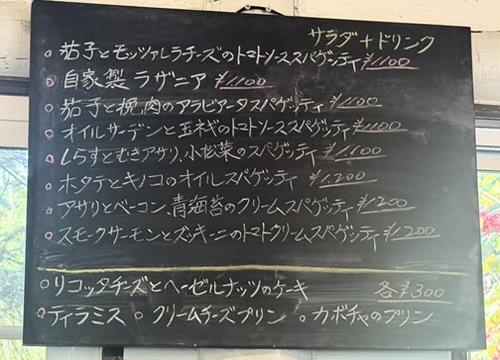 サラダ+ドリンク
○ 茄子とモッツァレラチーズのトマトソーススパゲッティ ¥1100
○ 自家製ラザニア ¥1100
○ 茄子と挽肉のアラビアータスパゲッティ ¥1100
○ オイルサーデンと玉ネギのトマトソーススパゲッティ ¥1100
○ しらすとむきアサリ、小松菜のスパゲッティ ¥1,100
○ ホタテとキノコのオイルスパゲッティ ¥1,200
○ アサリとベーコン、青海苔のクリームスパゲッティ ¥1,200
○ スモークサーモンとズッキーニのトマトクリームスパゲッティ ¥1,200
○リコッタチーズとヘーゼルナッツのケーキ 各¥300
○ティラミス ○ クリームチーズプリン ○ カボチャのプリン